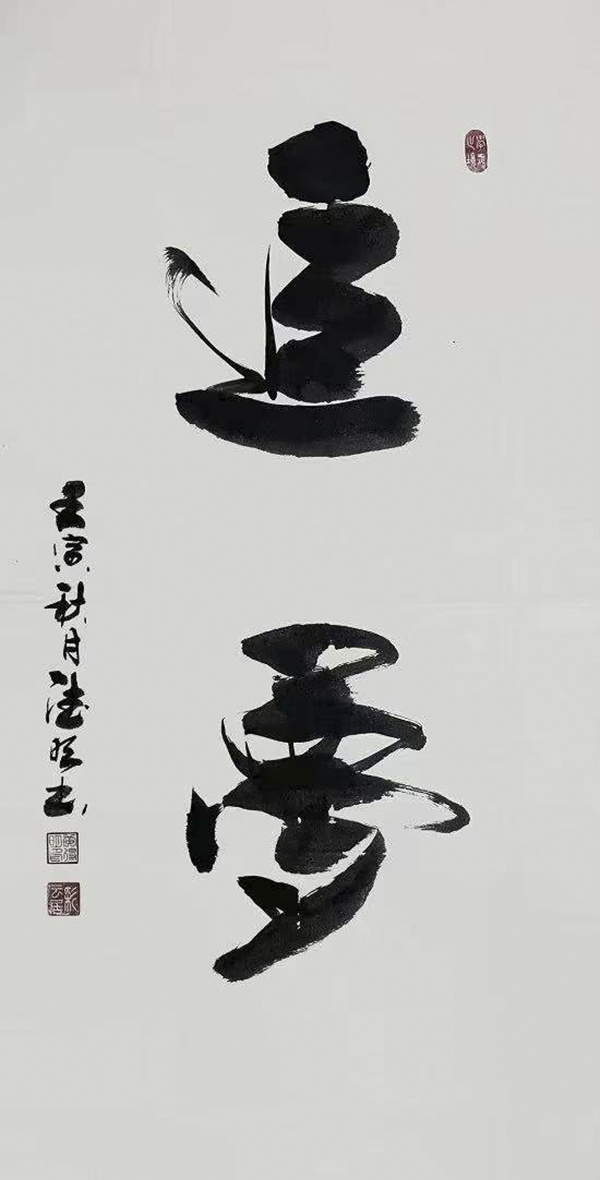 追
夢
壬寅秋月德明書